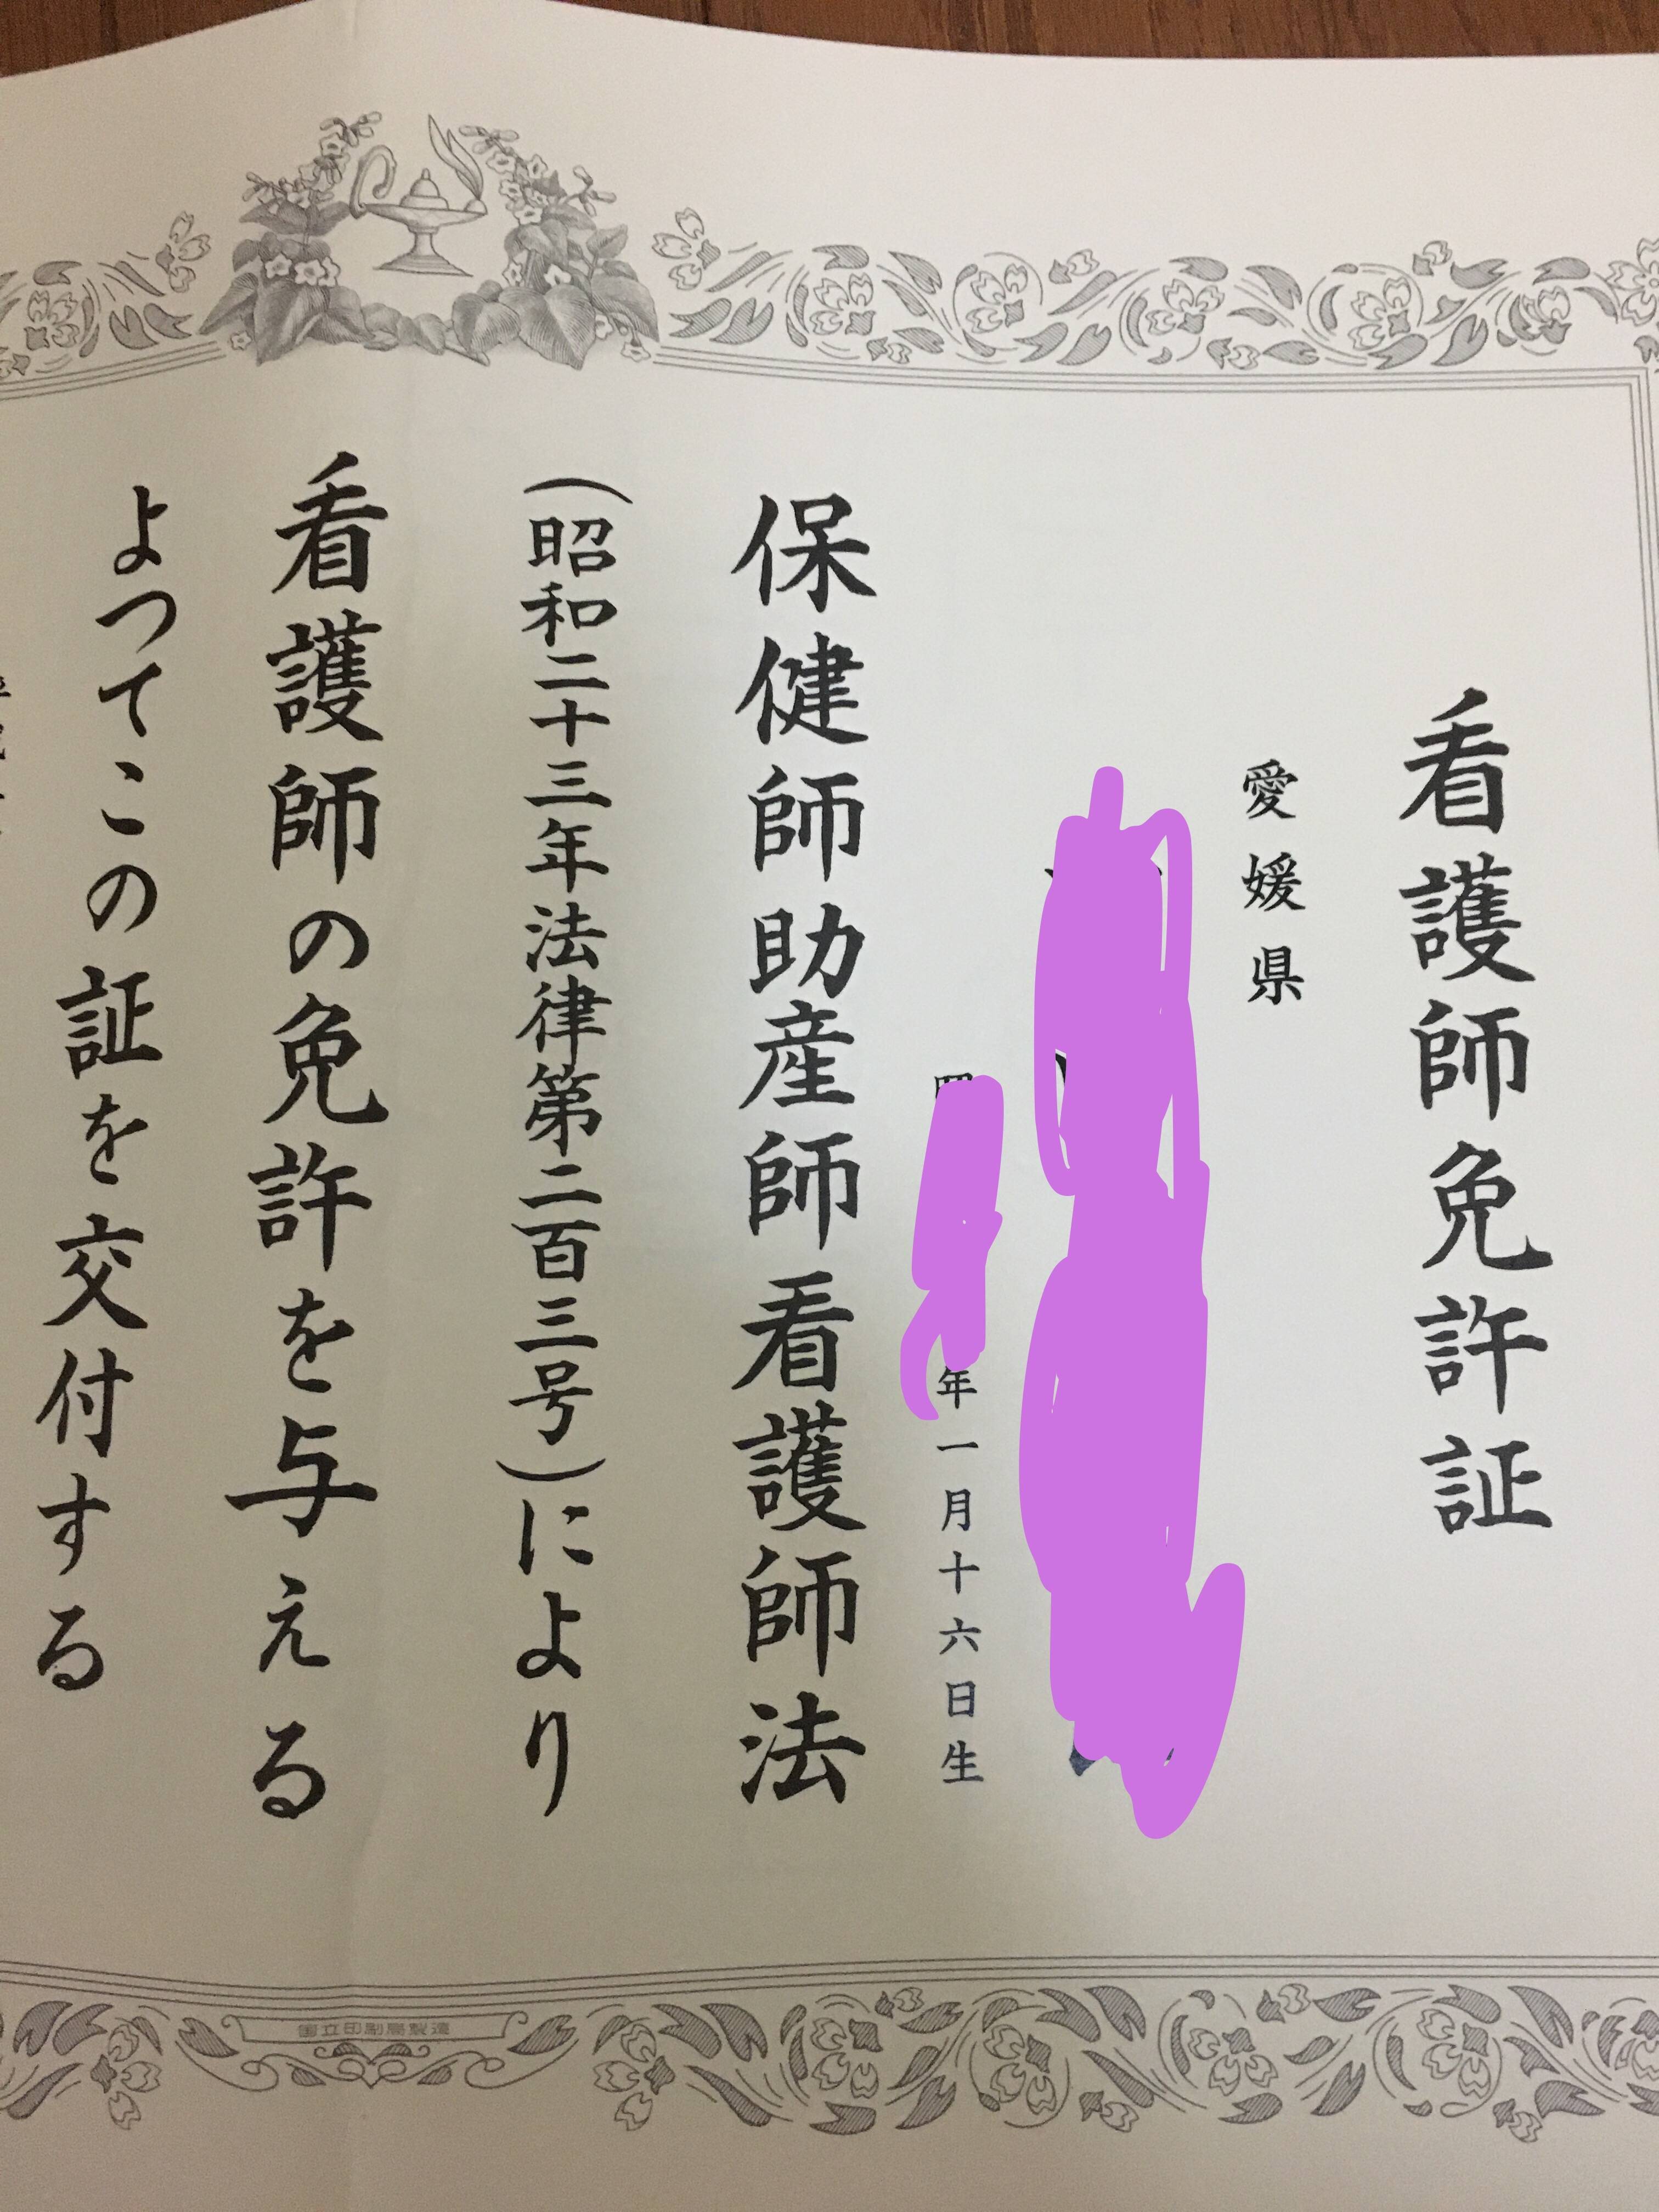 看護師免許証
愛媛県
年一月十六日生
保健師助産師看護師法
(昭和二十三年法律第二百三号)により
看護師の免許を与える
よつてこの証を交付する
国立印刷局製造